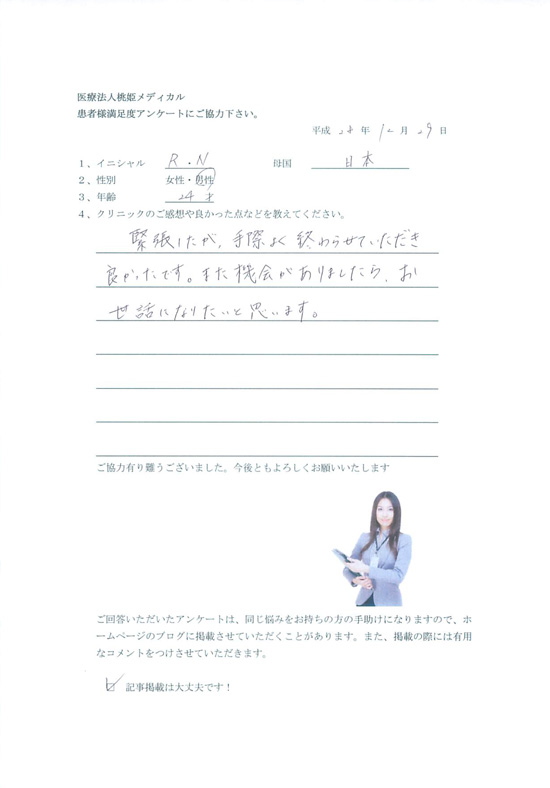 医療法人桃姫メディカル
患者様満足度アンケートにご協力下さい。
平成 28 年 12 月 29 日
1、イニシャル R.N 母国 日本
2、性別 女性・男性
3、年齢 24才
4、クリニックのご感想や良かった点などを教えてください。
緊張したが、手際よく終わらせていただき
良かったです。また機会がありましたら、お
世話になりたいと思います。
ご協力有り難うございました。今後ともよろしくお願いいたします
ご回答いただいたアンケートは、同じ悩みをお持ちの方の手助けになりますので、ホ
ームページのブログに掲載させていただくことがあります。また、掲載の際には有用
なコメントをつけさせていただきます。
記事掲載は大丈夫です！